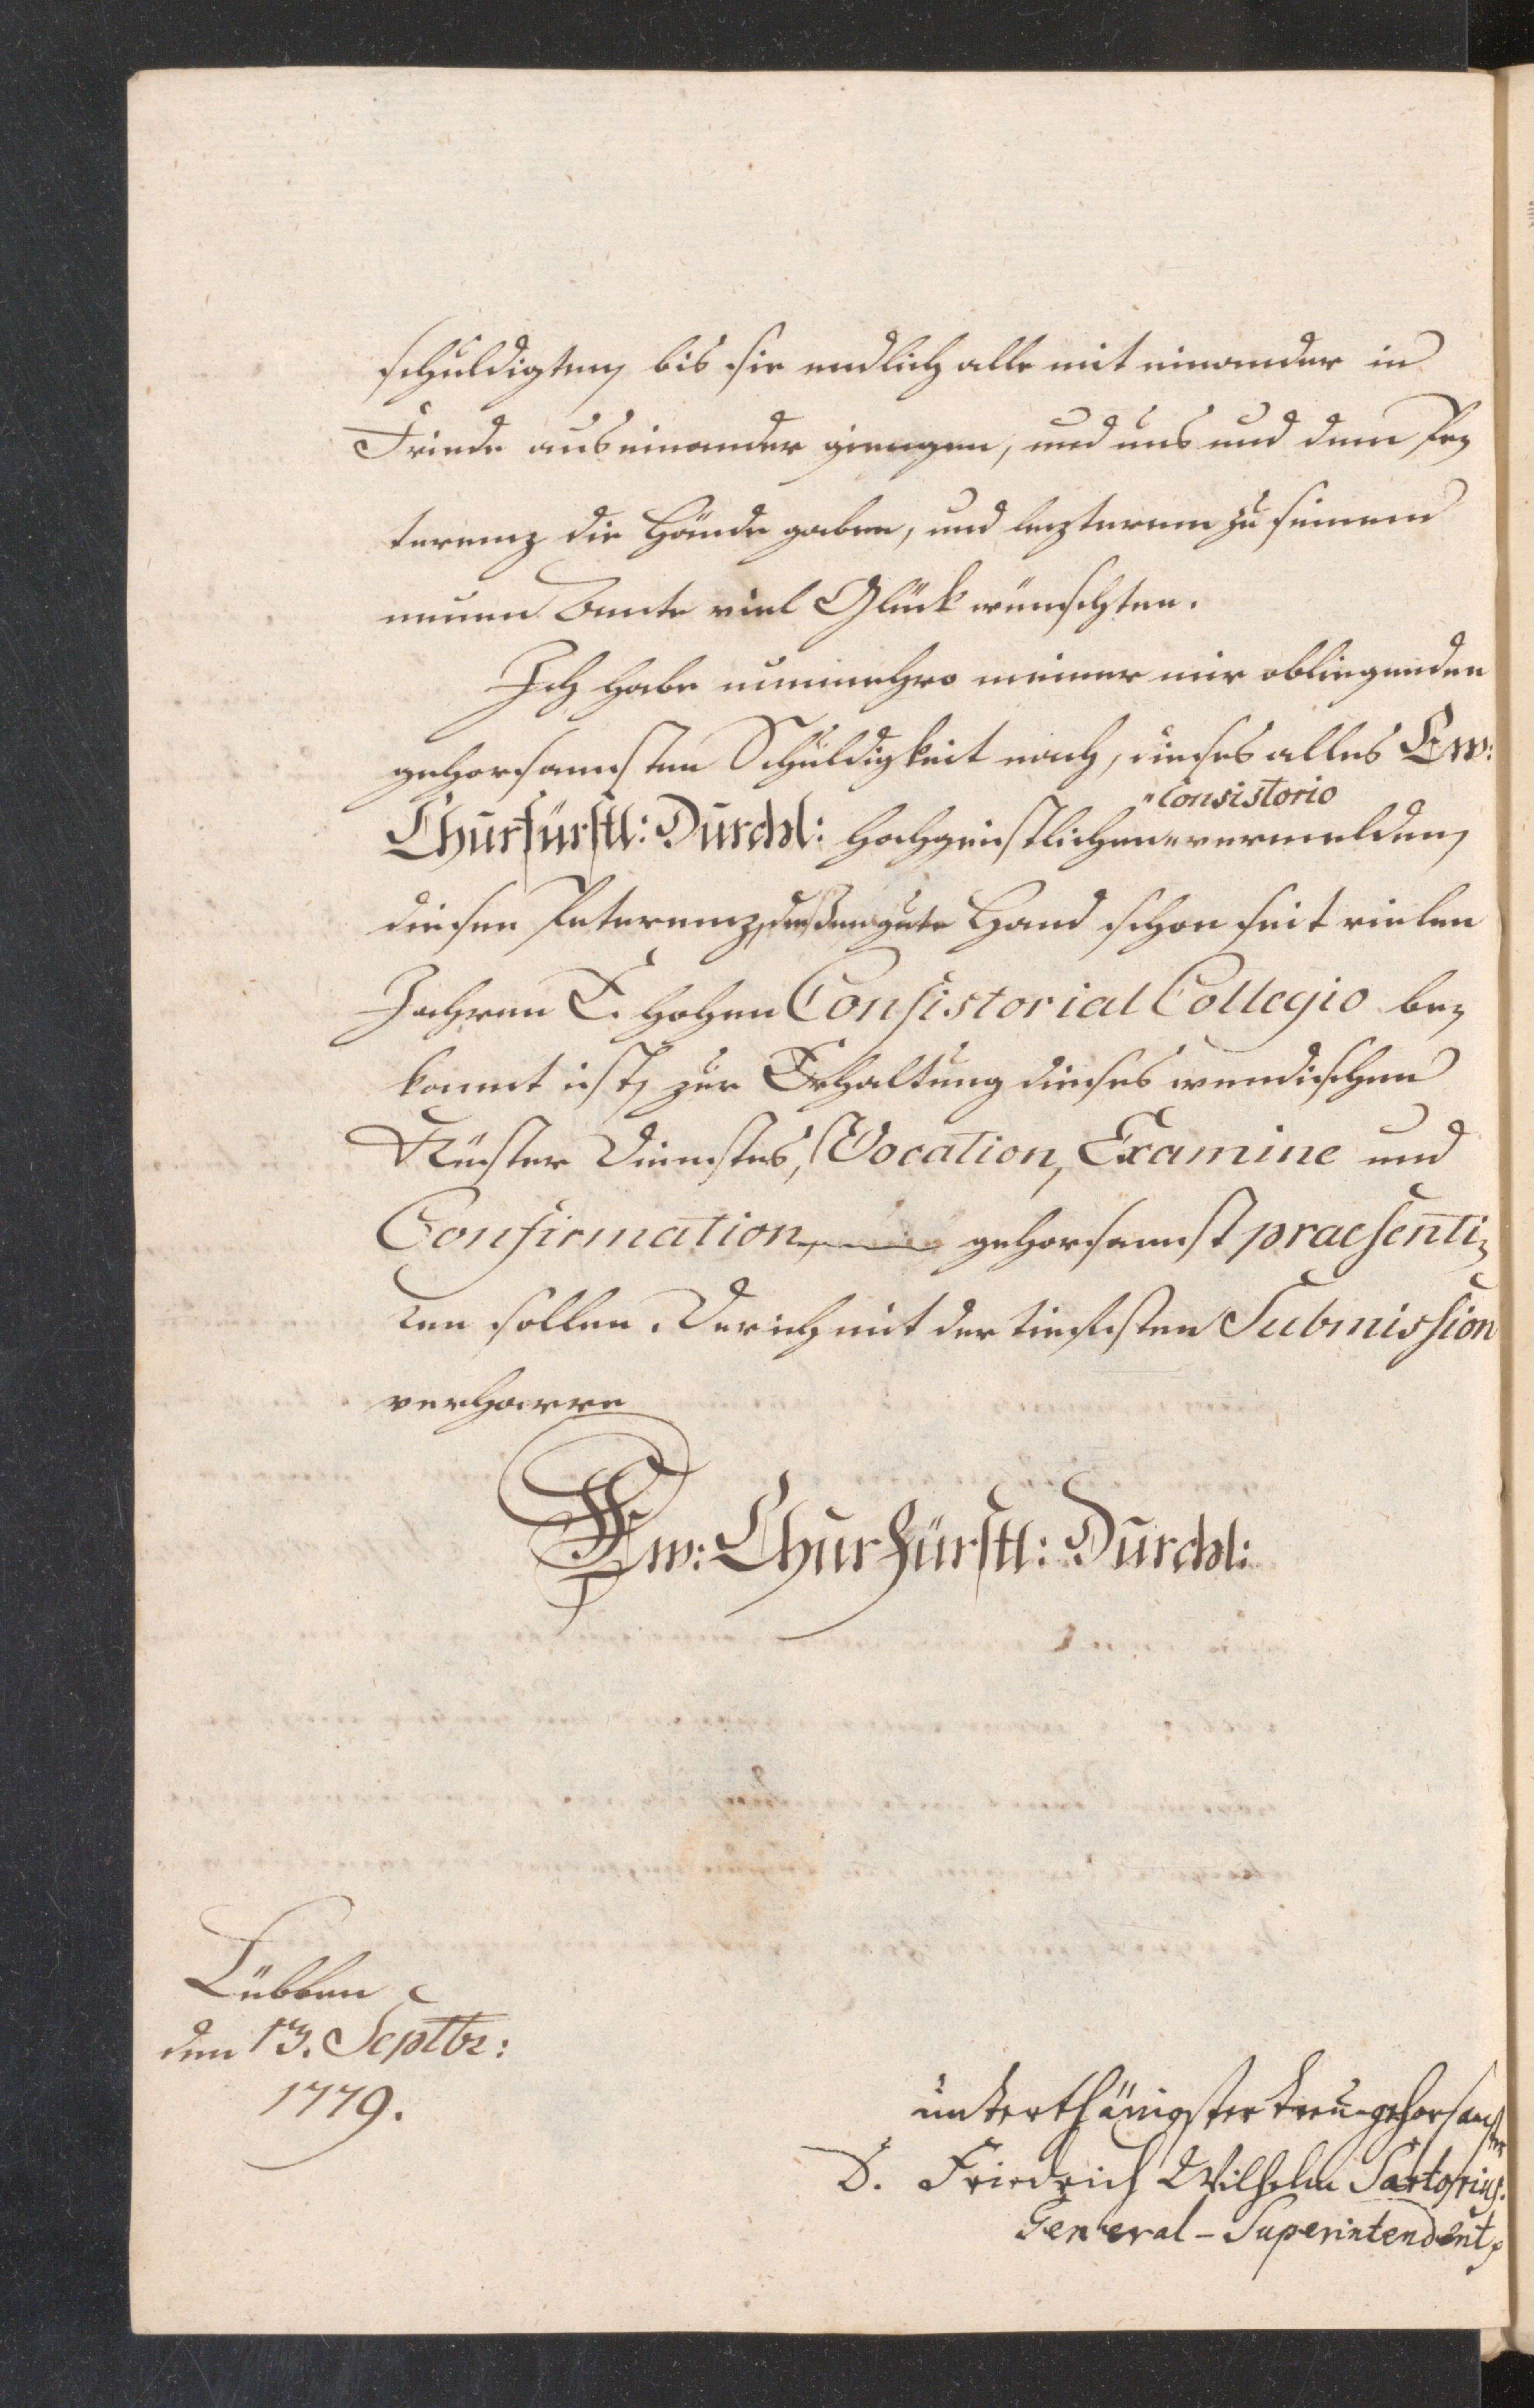 schuldigten, bis sie endlich alle mit einander in
Friede auseinander giengen, und uns und dem Pe-
terenz die Hände gaben, und lezterem zu seinem
neuen Amte viel Glück wünschten.
Ich habe nunmehro meiner mir obliegenden
gehorsamsten Schuldigkeit nach, dieses alles Ew:
Consistorio
Churfürstl: Durchl: Hochgeistlichem vermelden,
diesen Peterenz, deßen gute Hand schon seit vielen
Jahren E. Hohen Consistorial Collegio be-
kannt ist, zur Erhaltung dieses wendischen
Küster Dienstes, Vocation, Examine und
Confirmation, gehorsamst praesenti-
ren sollen. Der ich mit der tiefsten Submission
verharre
Ew: Churfürstl: Durchl:
Lübben
den 13. Septbr:
1779.
unterthänigster treu-gehorsamster
D. Friedrich Wilhelm Sartorius.
General-Superintendent,